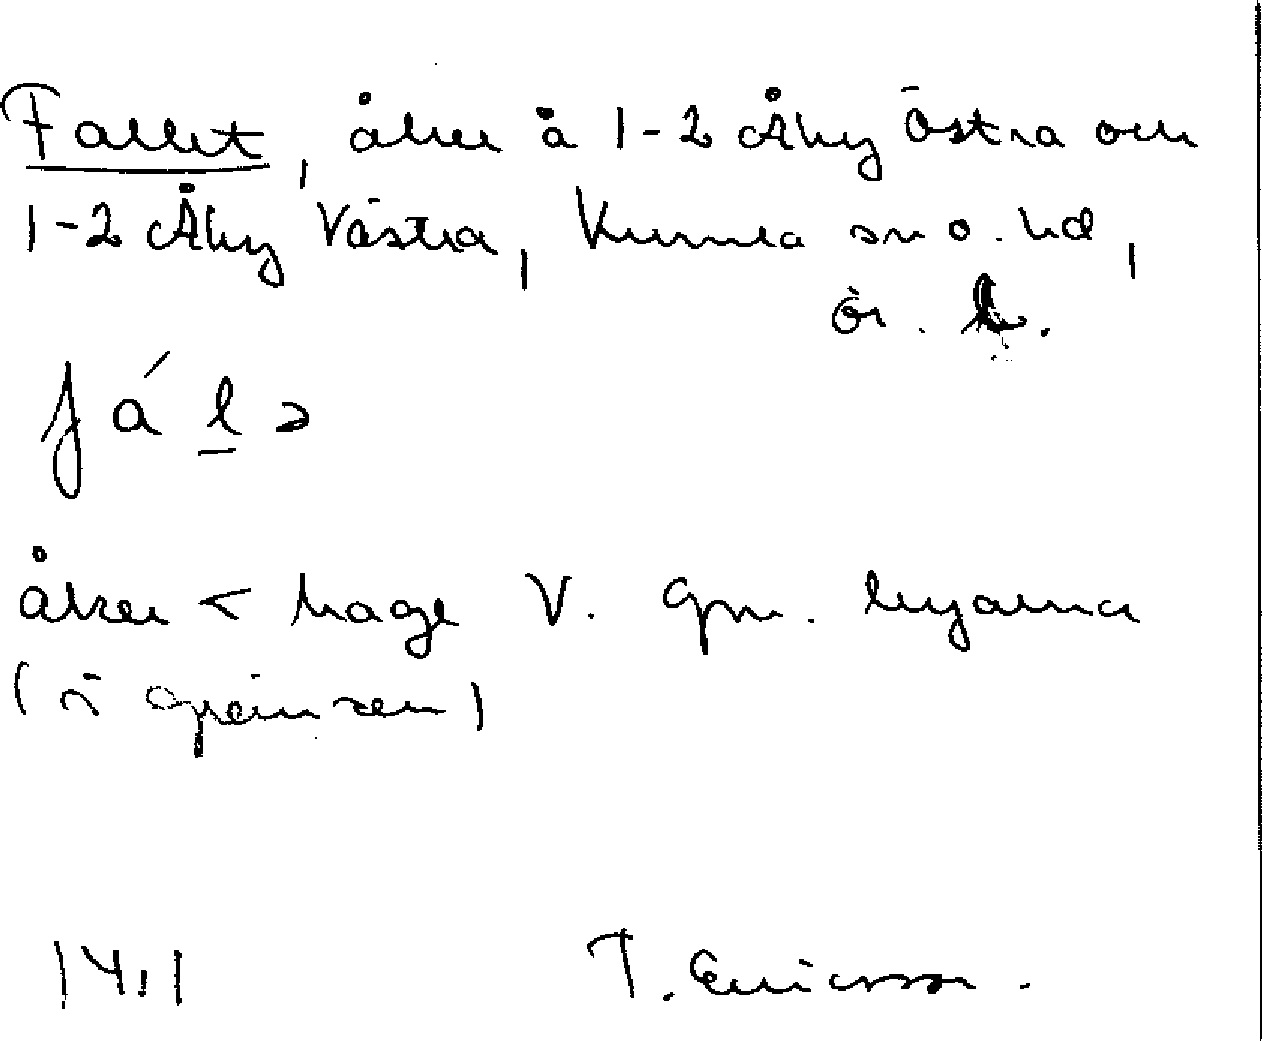 Fallet, åker å 1-2 Åby Östra och
1-2 Åby Västra, Kumla sn o. hd,
Ör. l.
fá l̲ ə
åker < hage V. gm. byarna
(i gränsen)
141 T. Ericsson.